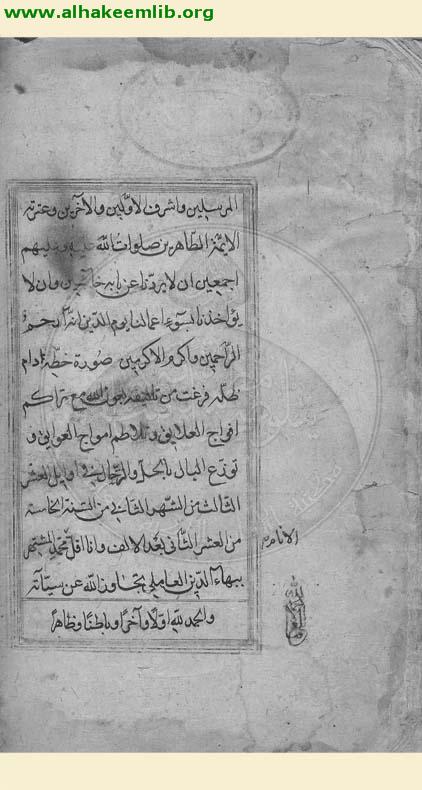 www.alhakeemlib.org
المرسلين واشرف الاولين والآخرين وعترته
الائمة الطاهرين صلوات الله عليه وعليهم
اجمعين ان لا يردنا عن بابه خائبين وان لا
يؤاخذنا بسوء اعمالنا يوم الدين انه ارحم
الراحمين واكرم الاكرمين صورة خطه ادام
ظله فرغت من تاليفه بعون الله مع تراكم
افواج العلايق وتلاطم امواج العوايق و
توزع البال بالحل والترحال في اوايل العشر
الثالث من الشهر الثاني من السنة الخامسة
من العشر الثاني بعد الالف وانا اقل محمد المشتهر
الانام
ببهاء الدين العاملي تجاوز الله عن سيئاته
والحمد لله اولا وآخرا وباطنا وظاهرا